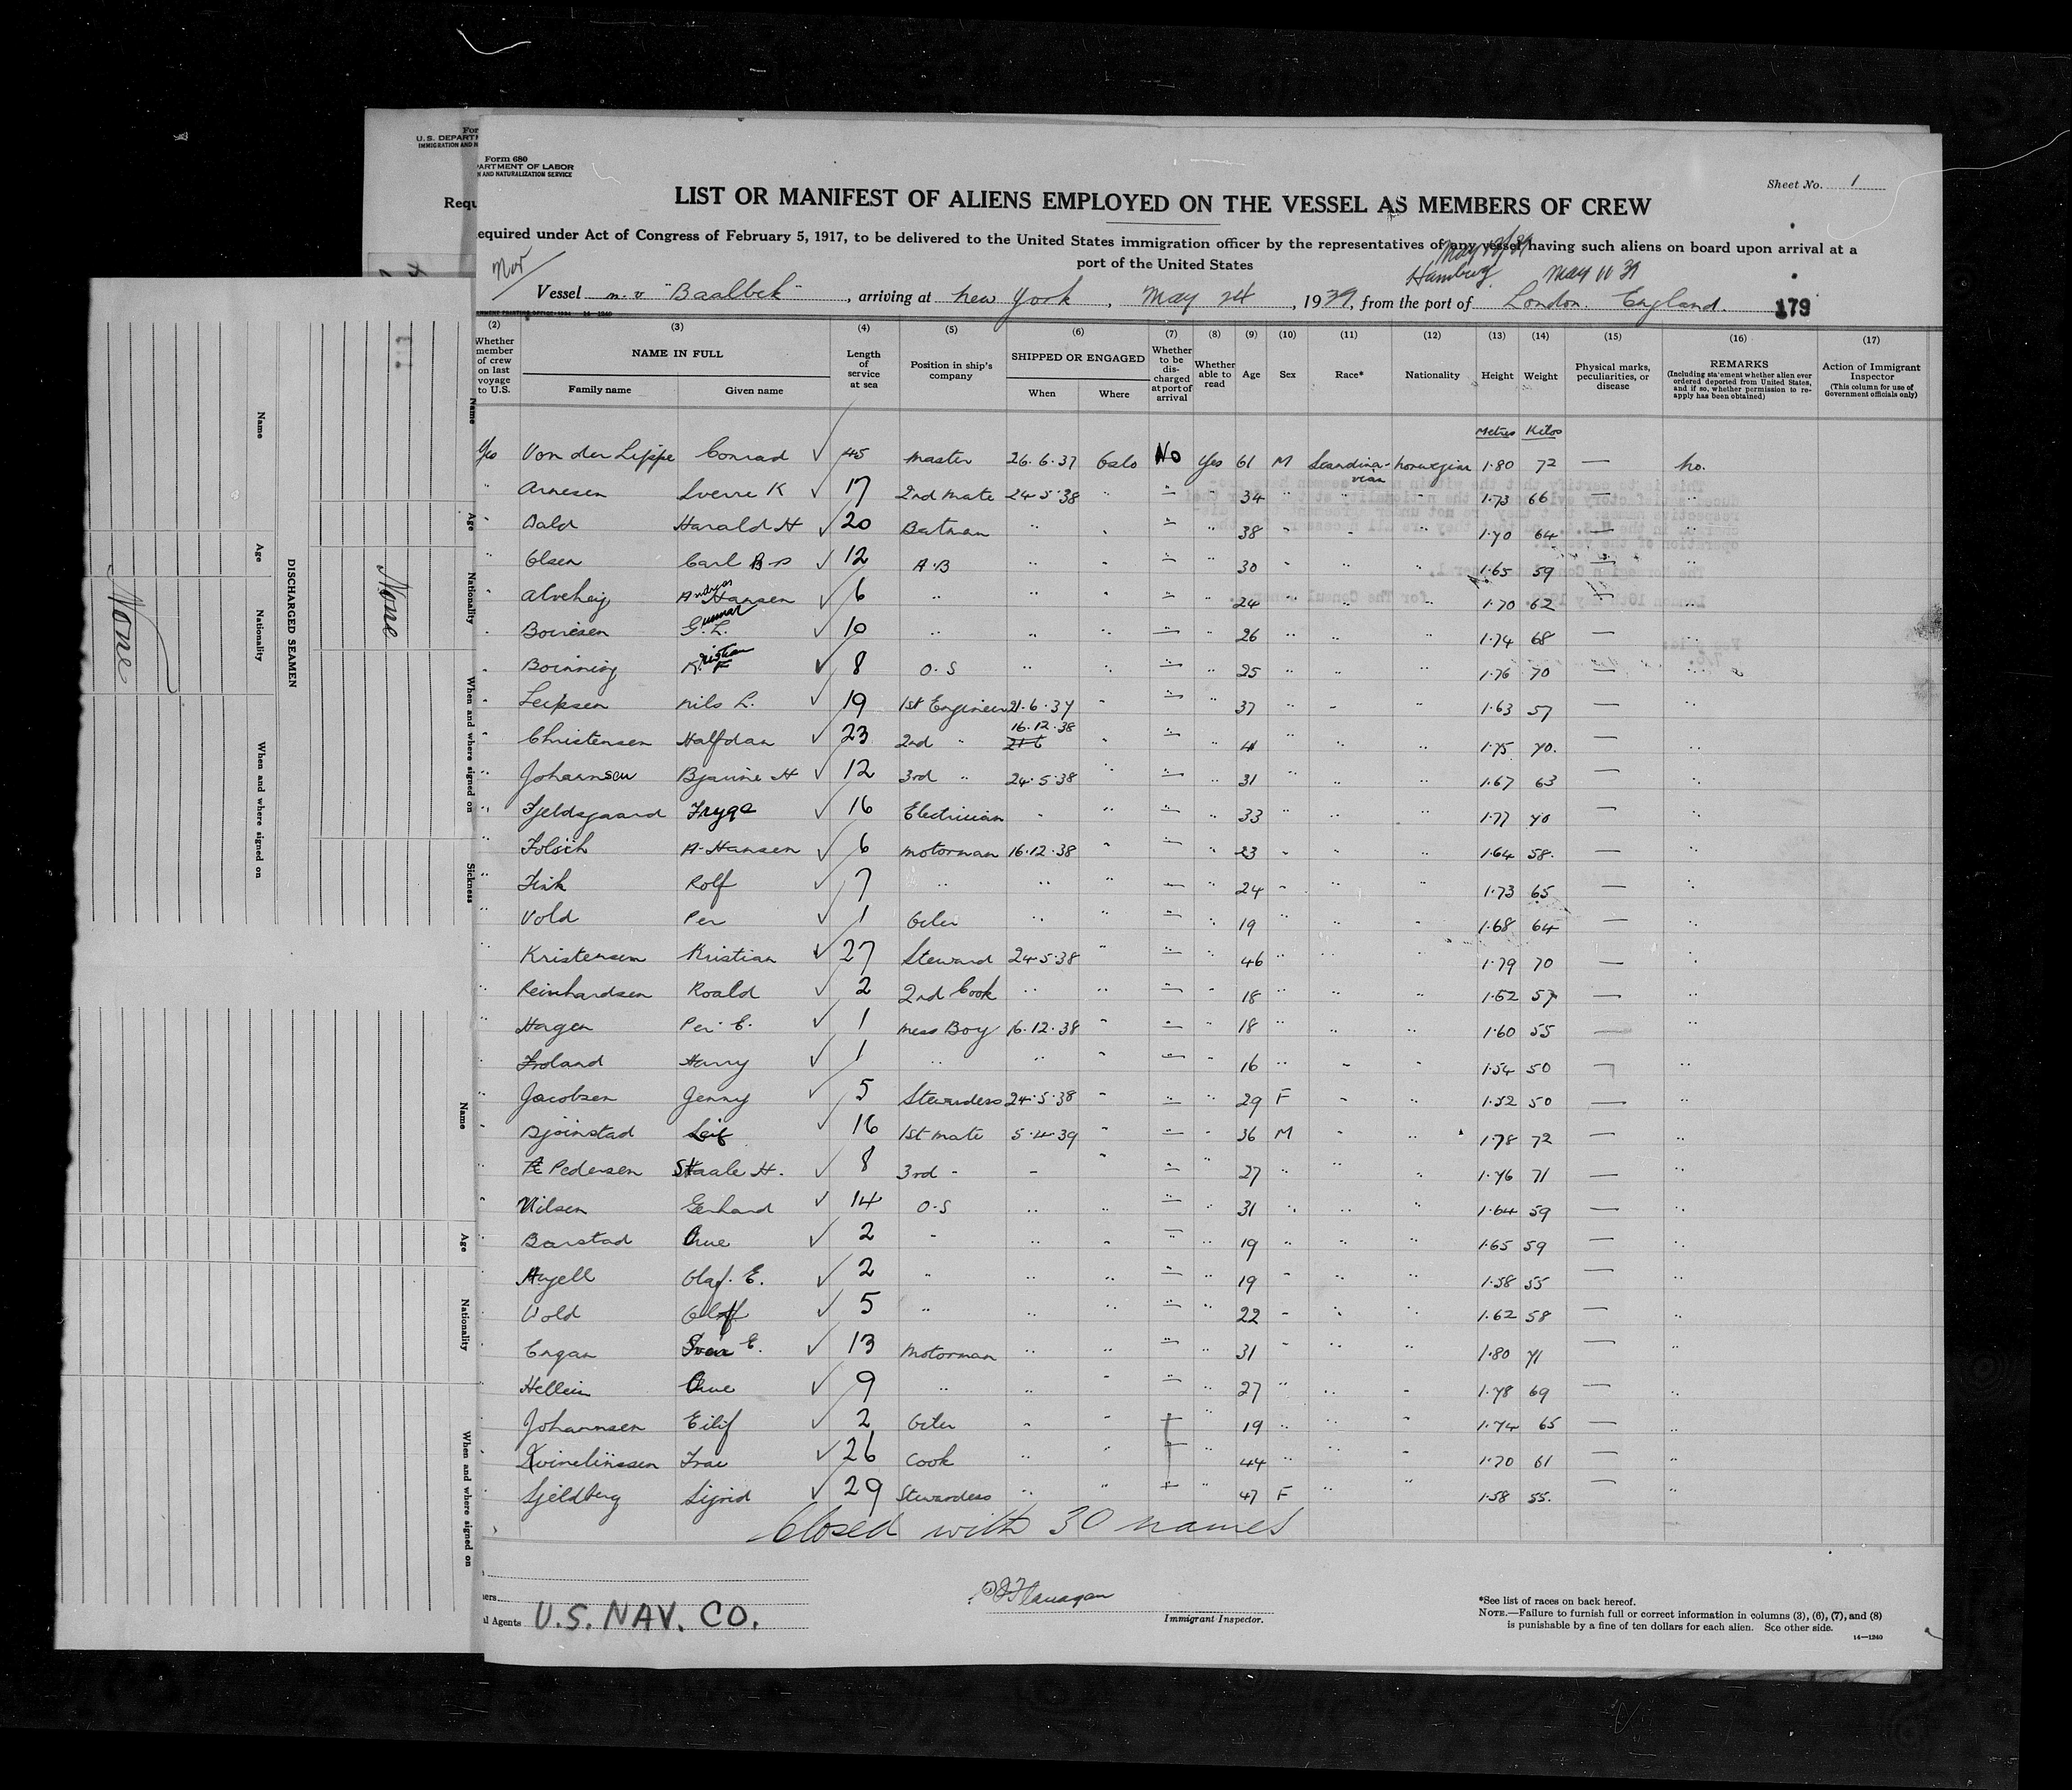 Form 680
U.S. DEPARTMENT OF LABOR
IMMIGRATION AND NATURALIZATION SERVICE
Sheet No. 1
LIST OR MANIFEST OF ALIENS EMPLOYED ON THE VESSEL AS MEMBERS OF CREW
equired under Act of Congress of February 5, 1917, to be delivered to the United States immigration officer by the representatives of any vessel having such aliens on board upon arrival at a
port of the United States
Nor
Hamburg May 11 39
Vessel m.v "Baalbek", arriving at New York, May 24, 1939, from the port of London. England. 179
(2) (3) (4) (5) (6) (7) (8) (9) (10) (11) (12) (13) (14) (15) (16) (17)
Whether member of crew on last voyage to U.S.
NAME IN FULL
Family name Given name
Length of service at sea
Position in ship's company
SHIPPED OR ENGAGED
When Where
Whether to be discharged at port of arrival
Whether able to read
Age Sex Race* Nationality Height Weight
Physical marks, peculiarities, or disease
REMARKS
(Including statement whether alien ever ordered deported from United States, and if so, whether permission to reapply has been obtained)
Action of Immigrant Inspector
(This column for use of Government officials only)
Metres Kilos
Yes Von der Lippe Conrad 45 Master 26.6.37 Oslo No Yes 61 M Scandinavian Norwegian 1.80 72 — No.
" Arnesen Sverre K 17 2nd Mate 24.5.38 " " " 34 " " " 1.73 66 — "
" Harald H 20 " " " " 38 " " " 1.70 64 — "
" Olsen Carl 12 A.B " " " " 30 " " " 1.65 59 — "
" Andreas Hansen 6 " " " " " 24 " " " 1.70 62 — "
" Gunnar L. 10 " " " " " 26 " " " 1.74 68 — "
" Kristian F 8 O.S " " " " 25 " " " 1.76 70 — "
" Nils L. 19 1st Engineer 21.6.37 " " " 37 " " " 1.63 57 — "
" Christensen Halfdan 23 2nd " 16.12.38 " " " 41 " " " 1.75 70. — "
" Johannsen Bjarne H 12 3rd " 24.5.38 " " " 31 " " " 1.67 63 — "
" Fjeldsgaard Trygve 16 Electrician " " " " 33 " " " 1.77 70 — "
" A. Hansen 6 Motorman 16.12.38 " " " 23 " " " 1.64 58. — "
" Fink Rolf 7 " " " " " 24 " " " 1.73 65 — "
" Vold Per 1 Oiler " " " " 19 " " " 1.68 64 — "
" Kristensen Kristian 27 Steward 24.5.38 " " " 46 " " " 1.79 70 — "
" Reinhardsen Roald 2 2nd Cook " " " " 18 " " " 1.62 57 — "
" Hagen Per E. 1 Mess Boy 16.12.38 " " " 18 " " " 1.60 55 — "
" Froland Harry 1 " " " " " 16 " " " 1.54 50 — "
" Jacobsen Jenny 5 Stewardess 24.5.38 " " " 29 F " " 1.52 50 — "
" Bjornstad Leif 16 1st Mate 5.4.39 " " " 36 M " " 1.78 72 — "
" Pedersen Staale H. 8 3rd " " " " " 27 " " " 1.76 71 — "
" Nilsen Gerhard 14 O.S " " " " 31 " " " 1.64 59 — "
" Barstad Arne 2 " " " " " 19 " " " 1.65 59 — "
" Olaf. E. 2 " " " " " 19 " " " 1.58 55 — "
" Vold Olaf 5 " " " " " 22 " " " 1.62 58 — "
" Engan Svein E. 13 Motorman " " " " 31 " " " 1.80 71 — "
" Arne 9 " " " " " 27 " " " 1.78 69 — "
" Johannsen Eilif 2 Oiler " " " " 19 " " " 1.74 65 — "
" 26 Cook " " " " 44 " " " 1.70 61 — "
" Sjeldberg Sigrid 29 Stewardess " " " " 47 F " " 1.58 55. — "
Closed with 30 names
Flanagan
Immigrant Inspector.
l Agents U.S. NAV. CO.
*See list of races on back hereof.
NOTE.—Failure to furnish full or correct information in columns (3), (6), (7), and (8)
is punishable by a fine of ten dollars for each alien. See other side.
14—1240
DISCHARGED SEAMEN
Name Age Nationality When and where signed on
None
None
Name Age Nationality When and where signed on Sickness
Name Age Nationality When and where signed on